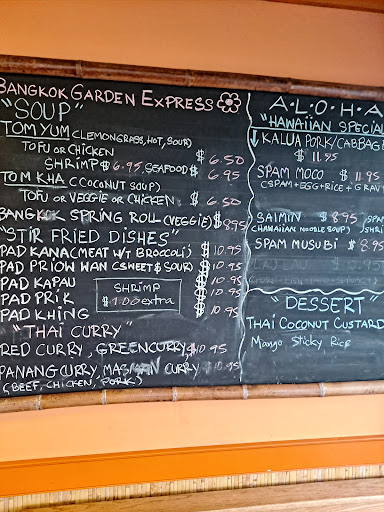 BANGKOK GARDEN EXPRESS
"SOUP"
TOM YUM (LEMONGRASS, HOT, SOUR)
TOFU OR CHICKEN $ 6.50
SHRIMP $6.95, SEAFOOD $ 6.95
TOM KHA (COCONUT SOUP)
TOFU OR VEGGIE OR CHICKEN $ 6.50
BANGKOK SPRING ROLL (VEGGIE) $8.95
"STIR FRIED DISHES"
PAD KANA (MEAT W/T BROCCOLI) $ 10.95
PAD PRIOW WAN (SWEET & SOUR) $ 10.95
PAD KAPAU $ 10.95
PAD PRIK $ 10.95
PAD KHING $ 10.95
SHRIMP
$1.00 extra
"THAI CURRY"
RED CURRY, GREEN CURRY $10.95
PANANG CURRY, CURRY 10.95
(BEEF, CHICKEN, PORK)
A·L·O·H·A
"HAWAIIAN SPECIAL
KALUA PORK/CABBAGE
$ 11.95
SPAM MOCO $ 11.95
(SPAM+EGG+RICE+GRAV
SAIMIN $8.95
(HAWAIIAN NOODLE SOUP)
SPAM MUSUBI $ 8.95
"DESSERT"
THAI COCONUT CUSTARD
Mango Sticky Rice